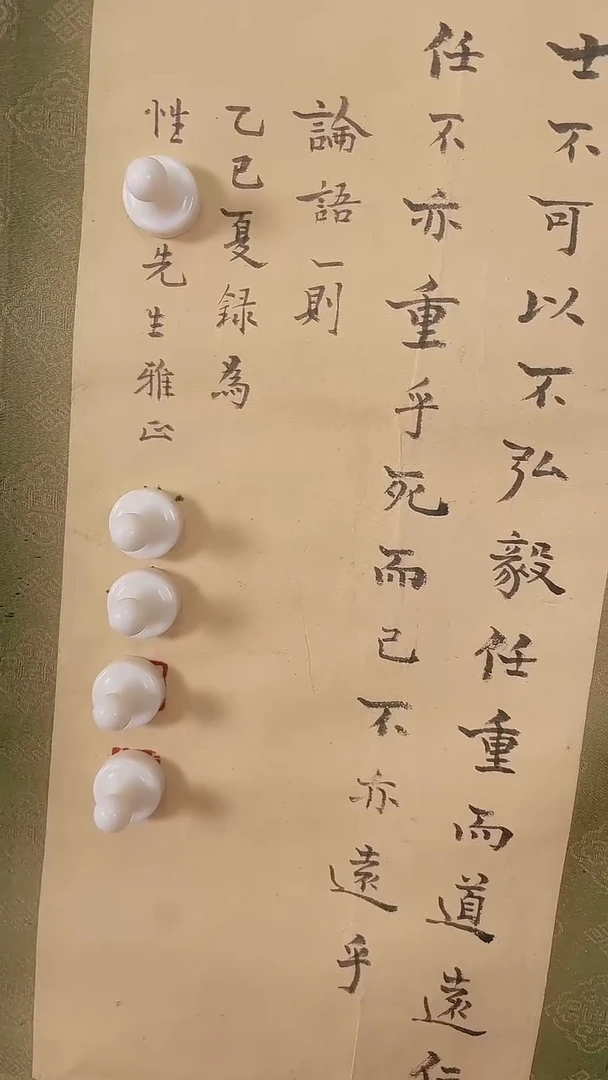 士不可以不弘毅任重而道遠仁
任不亦重乎死而已不亦遠乎
論語一則
乙巳夏録為
性
先生雅正